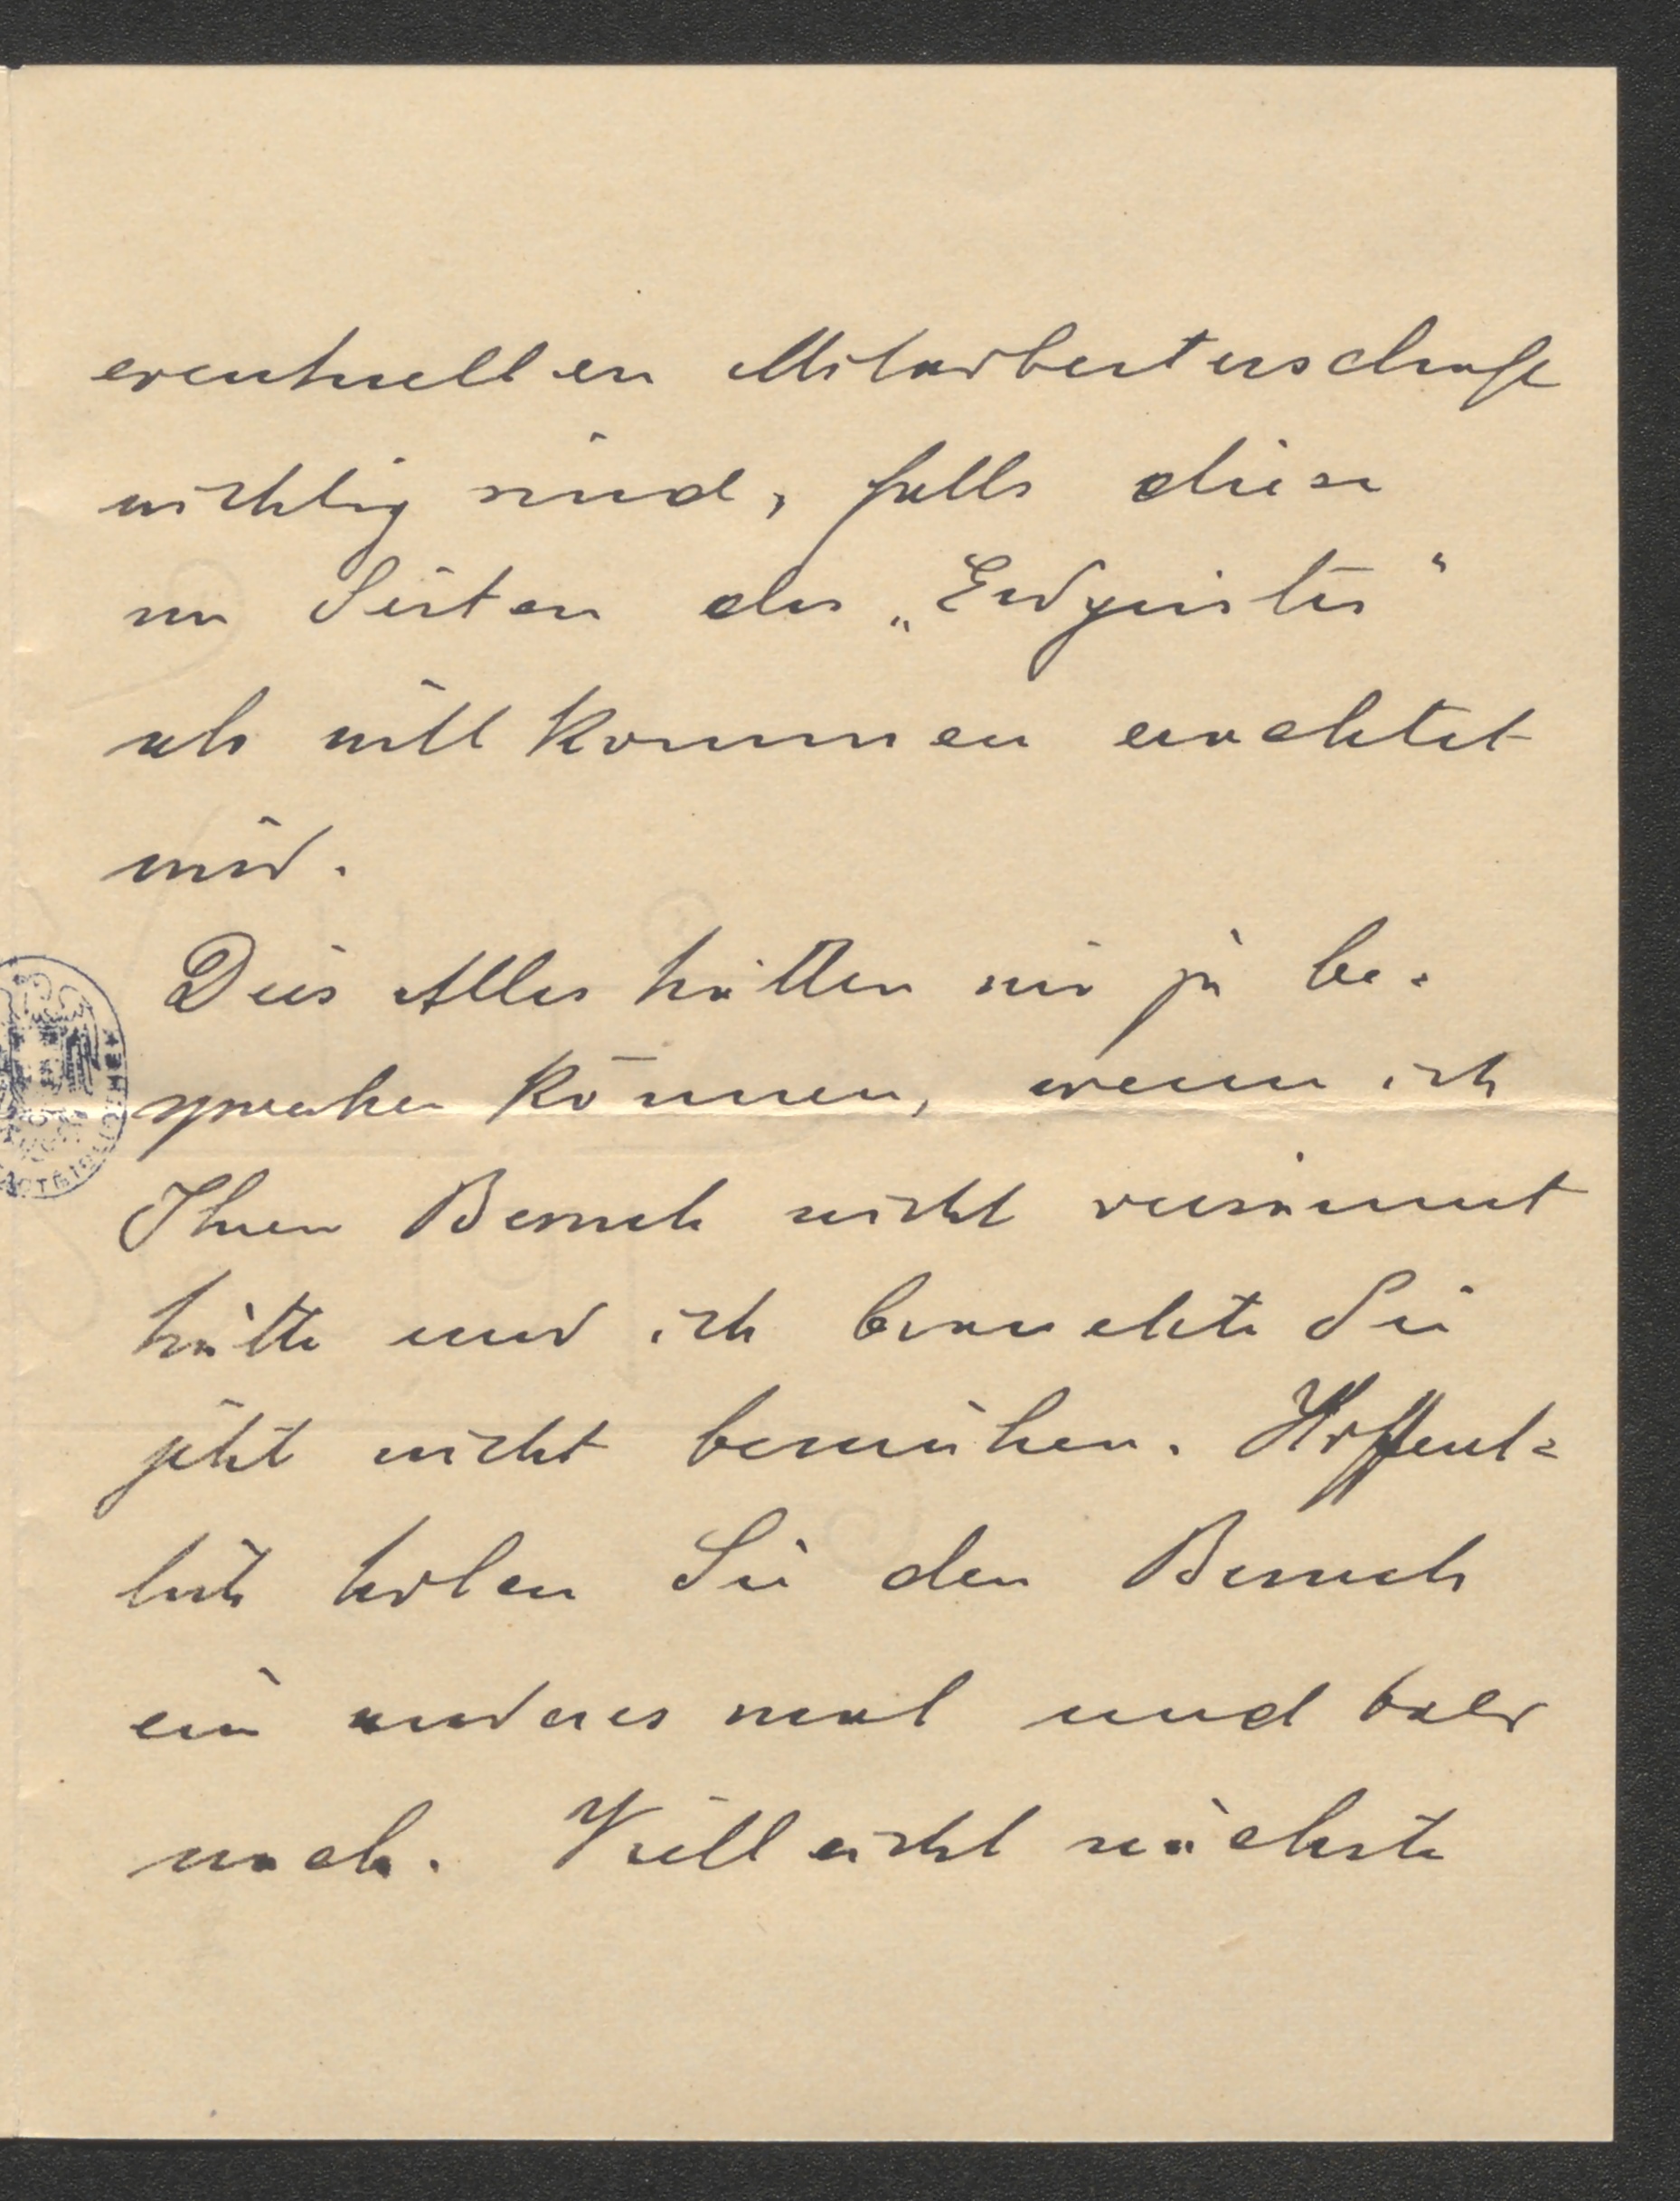 eventuellen Mitarbeiterschaft
wichtig sind, falls diese
von Seiten des „Erdgeistes“
als willkommen erachtet
wird.
Dies Alles hätten wir ja be-
sprechen können, wenn ich
Ihren Besuch nicht versäumt
hätte und ich brauchte Sie
jetzt nicht bemühen. Hoffent-
lich holen Sie den Besuch
ein anderes mal und bald
nach. Vielleicht nächste